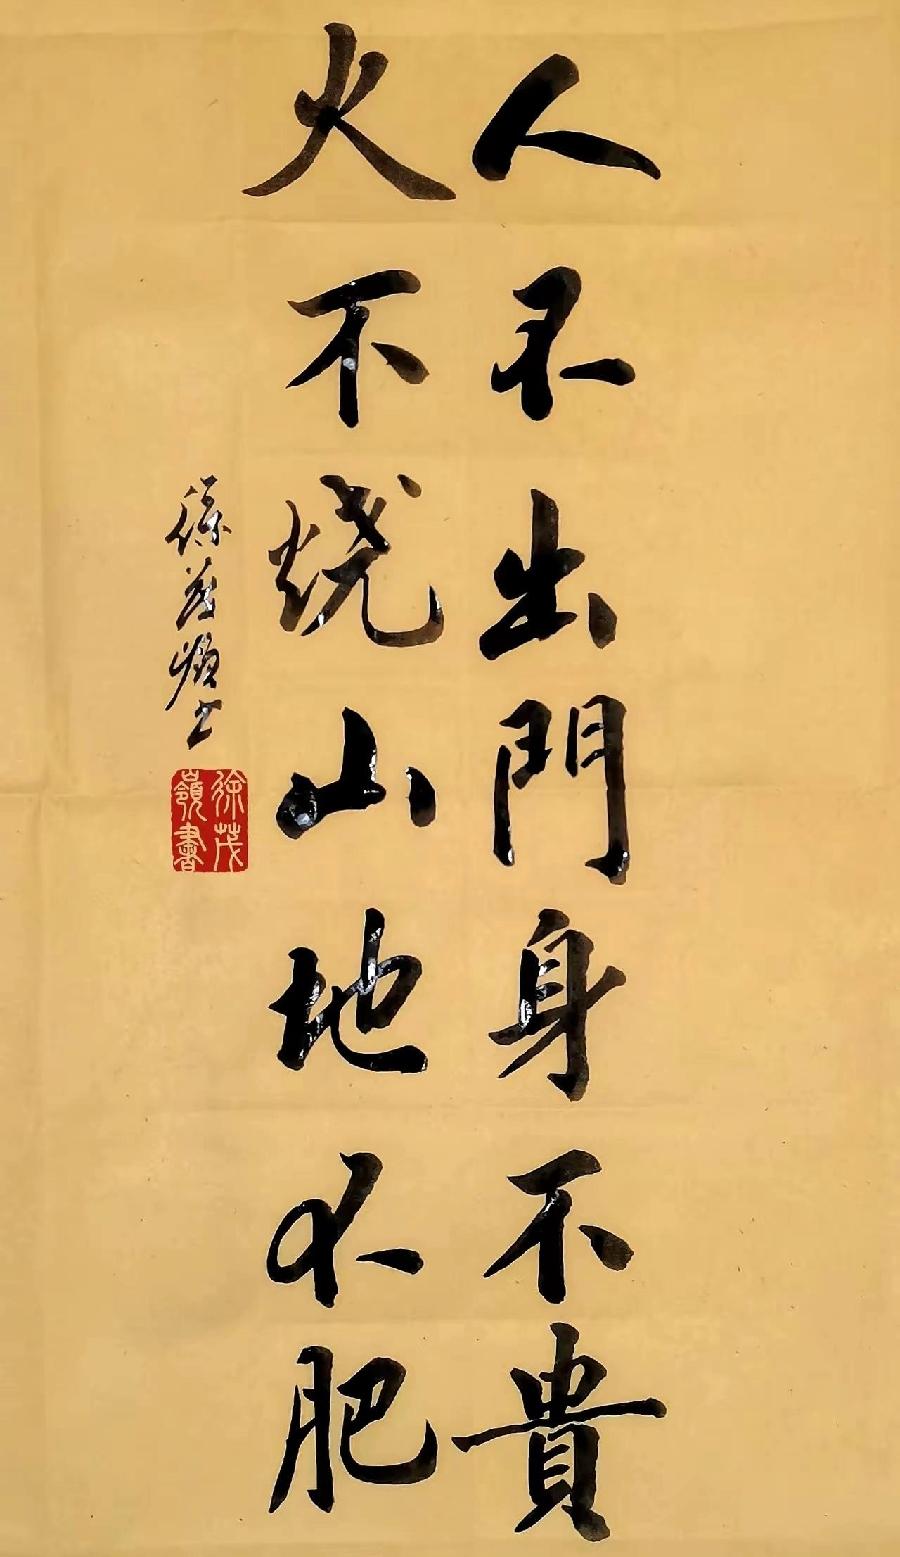 人不出門身不貴
火不烧山地不肥
徐茂嶺书
徐茂嶺書